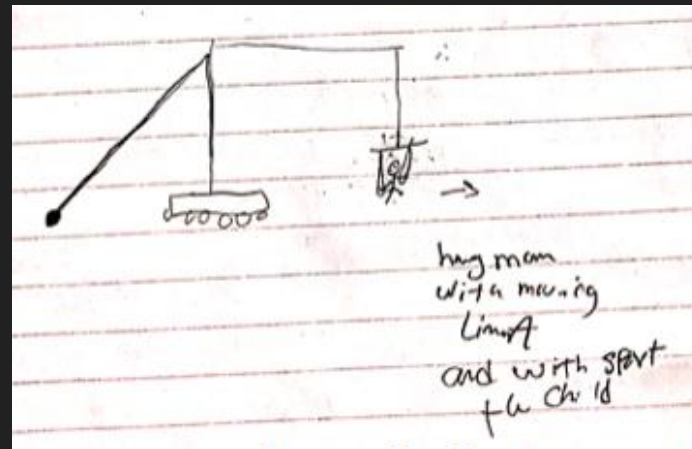 hng man
with moving
and with sport
the child